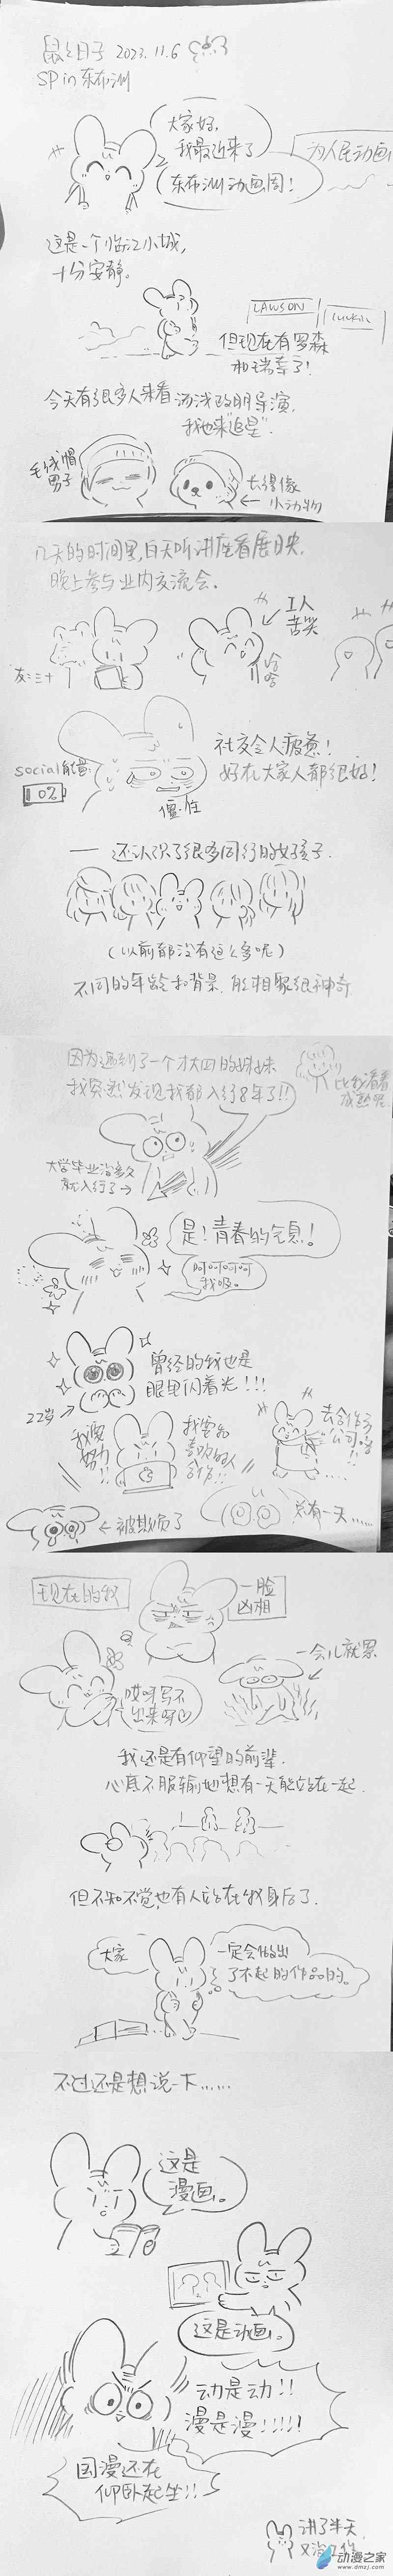 鼠之日子 2023.11.6
SP in 东布洲
大家好,
我最近来了
东布洲动画周!
为人民动画
这是一个临江小城,
十分安静。
LAWSON
luckin
但现在有罗森
和瑞幸了!
今天有很多人来看汤浅政明导演,
我也来“追星”.
毛线帽
男子
长得像
小动物
几天的时间里,白天听讲座看展映,
晚上参与业内交流会。
工人
苦笑
哈
哈
社交令人疲惫!
好在大家人都很好!
social能量
10%
僵住
—— 还认识了很多同行的好孩子.
(以前都没有这么多呢)
不同的年龄和背景,能相聚很神奇
因为遇到了一个才大四的妹妹
我突然发现我都入行8年了!!
比我看着
成熟呢
大学毕业没多久
就入行了→
是!青春的气息!
呵呵呵呵
我吸。
曾经的我也是
眼里闪着光!!!
22岁
我要
努力!!
我要和
喜欢的人
合作!!
去合作方
公司
←被欺负了
总有一天……
现在的我
一脸
凶相
哎呀写不
出来呀♡
一会儿就累
我还是有仰望的前辈.
心底不服输地想有一天能站在一起.
但不知不觉,也有人站在我身后了.
大家
一定会做出
了不起的作品的。
不过还是想说一下……
这是
漫画。
这是动画。
动是动!!
漫是漫!!!!!
国漫还在
仰卧起坐!!
讲了半天
动漫之家
www.dmzj.com